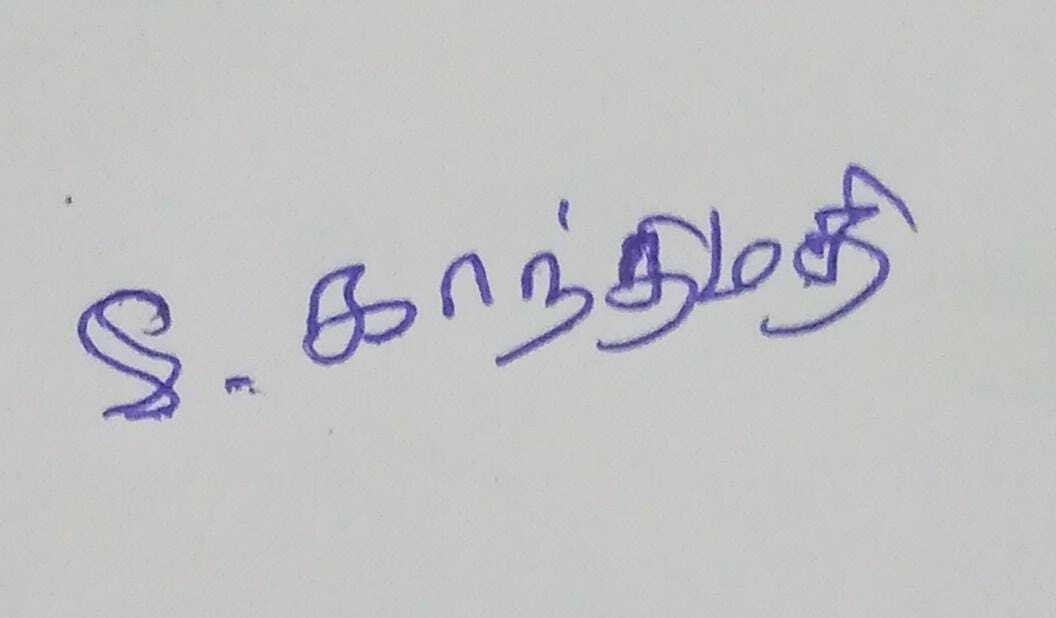 இ. காந்திமதி